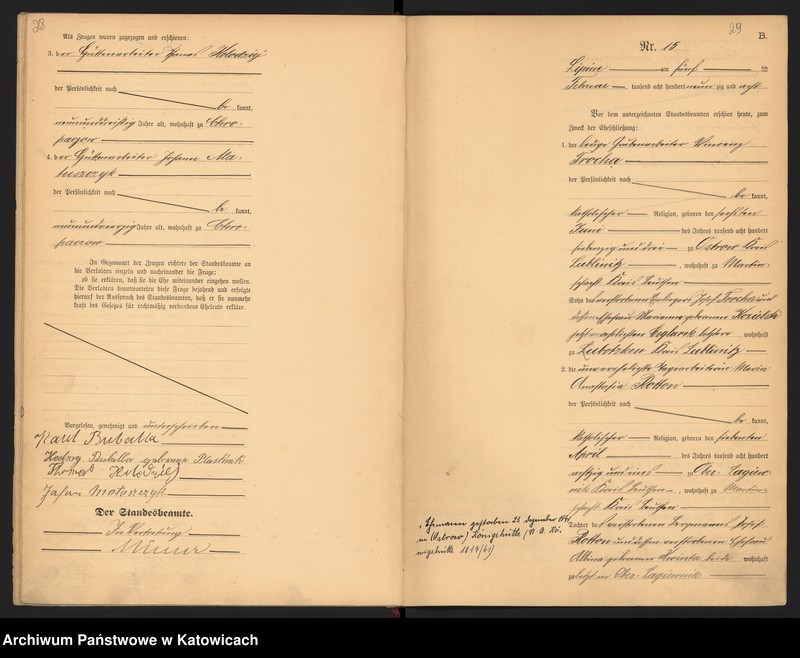 28
Als Zeugen waren zugezogen und erschienen:
3. der Hüttenarbeiter Thomas Holodziej
der Persönlichkeit nach
be kannt,
neununddreißig Jahre alt, wohnhaft zu Chro-
paczow
4. der Hüttenarbeiter Johann Ma-
tuszczyk
der Persönlichkeit nach
be kannt,
Jahre alt, wohnhaft zu Chro-
paczow
In Gegenwart der Zeugen richtete der Standesbeamte an
die Verlobten einzeln und nacheinander die Frage:
ob sie erklären, daß sie die Ehe miteinander eingehen wollen.
Die Verlobten beantworteten diese Frage bejahend und erfolgte
hierauf der Ausspruch des Standesbeamten, daß er sie nunmehr
kraft des Gesetzes für rechtmäßig verbundene Eheleute erkläre.
Vorgelesen, genehmigt und unterschrieben
Karl Buballa
Hedwig Buballa geborene
Thomas
Johann
Der Standesbeamte.
In Vertretung
29
B.
Nr. 15
Lipine am fünf ten
Februar tausend acht hundert neun zig und acht
Vor dem unterzeichneten Standesbeamten erschien heute, zum
Zweck der Eheschließung:
1. der ledige Grubenarbeiter Vincenz
Trocha
der Persönlichkeit nach
be kannt,
katholischer Religion, geboren den sechsten
Juni des Jahres tausend acht hundert
siebenzig und drei zu Ostrow Kreis
Lublinitz, wohnhaft zu Martin-
schacht Kreis Beuthen
Sohn des verstorbenen Josef Trocha und
dessen Ehefrau Marianna geborene Kozielski
jetzt verehelichten letztere wohnhaft
zu Kreis Lublinitz
2. die unverehelichte Marie
Anastasia Rotton
der Persönlichkeit nach
be kannt,
katholischer Religion, geboren den siebenten
April des Jahres tausend acht hundert
achtzig und eins zu Ober-Lagiew-
nik Kreis Beuthen, wohnhaft zu Martin-
schacht Kreis Beuthen
Tochter des verstorbenen Bergmanns Josef
Rotton und dessen verstorbenen Ehefrau
Albina geborenen beide wohnhaft
zuletzt in Ober-Lagiewnik
Ehemann gestorben 22. Dezember
in Königshütte
Archiwum Państwowe w Katowicach